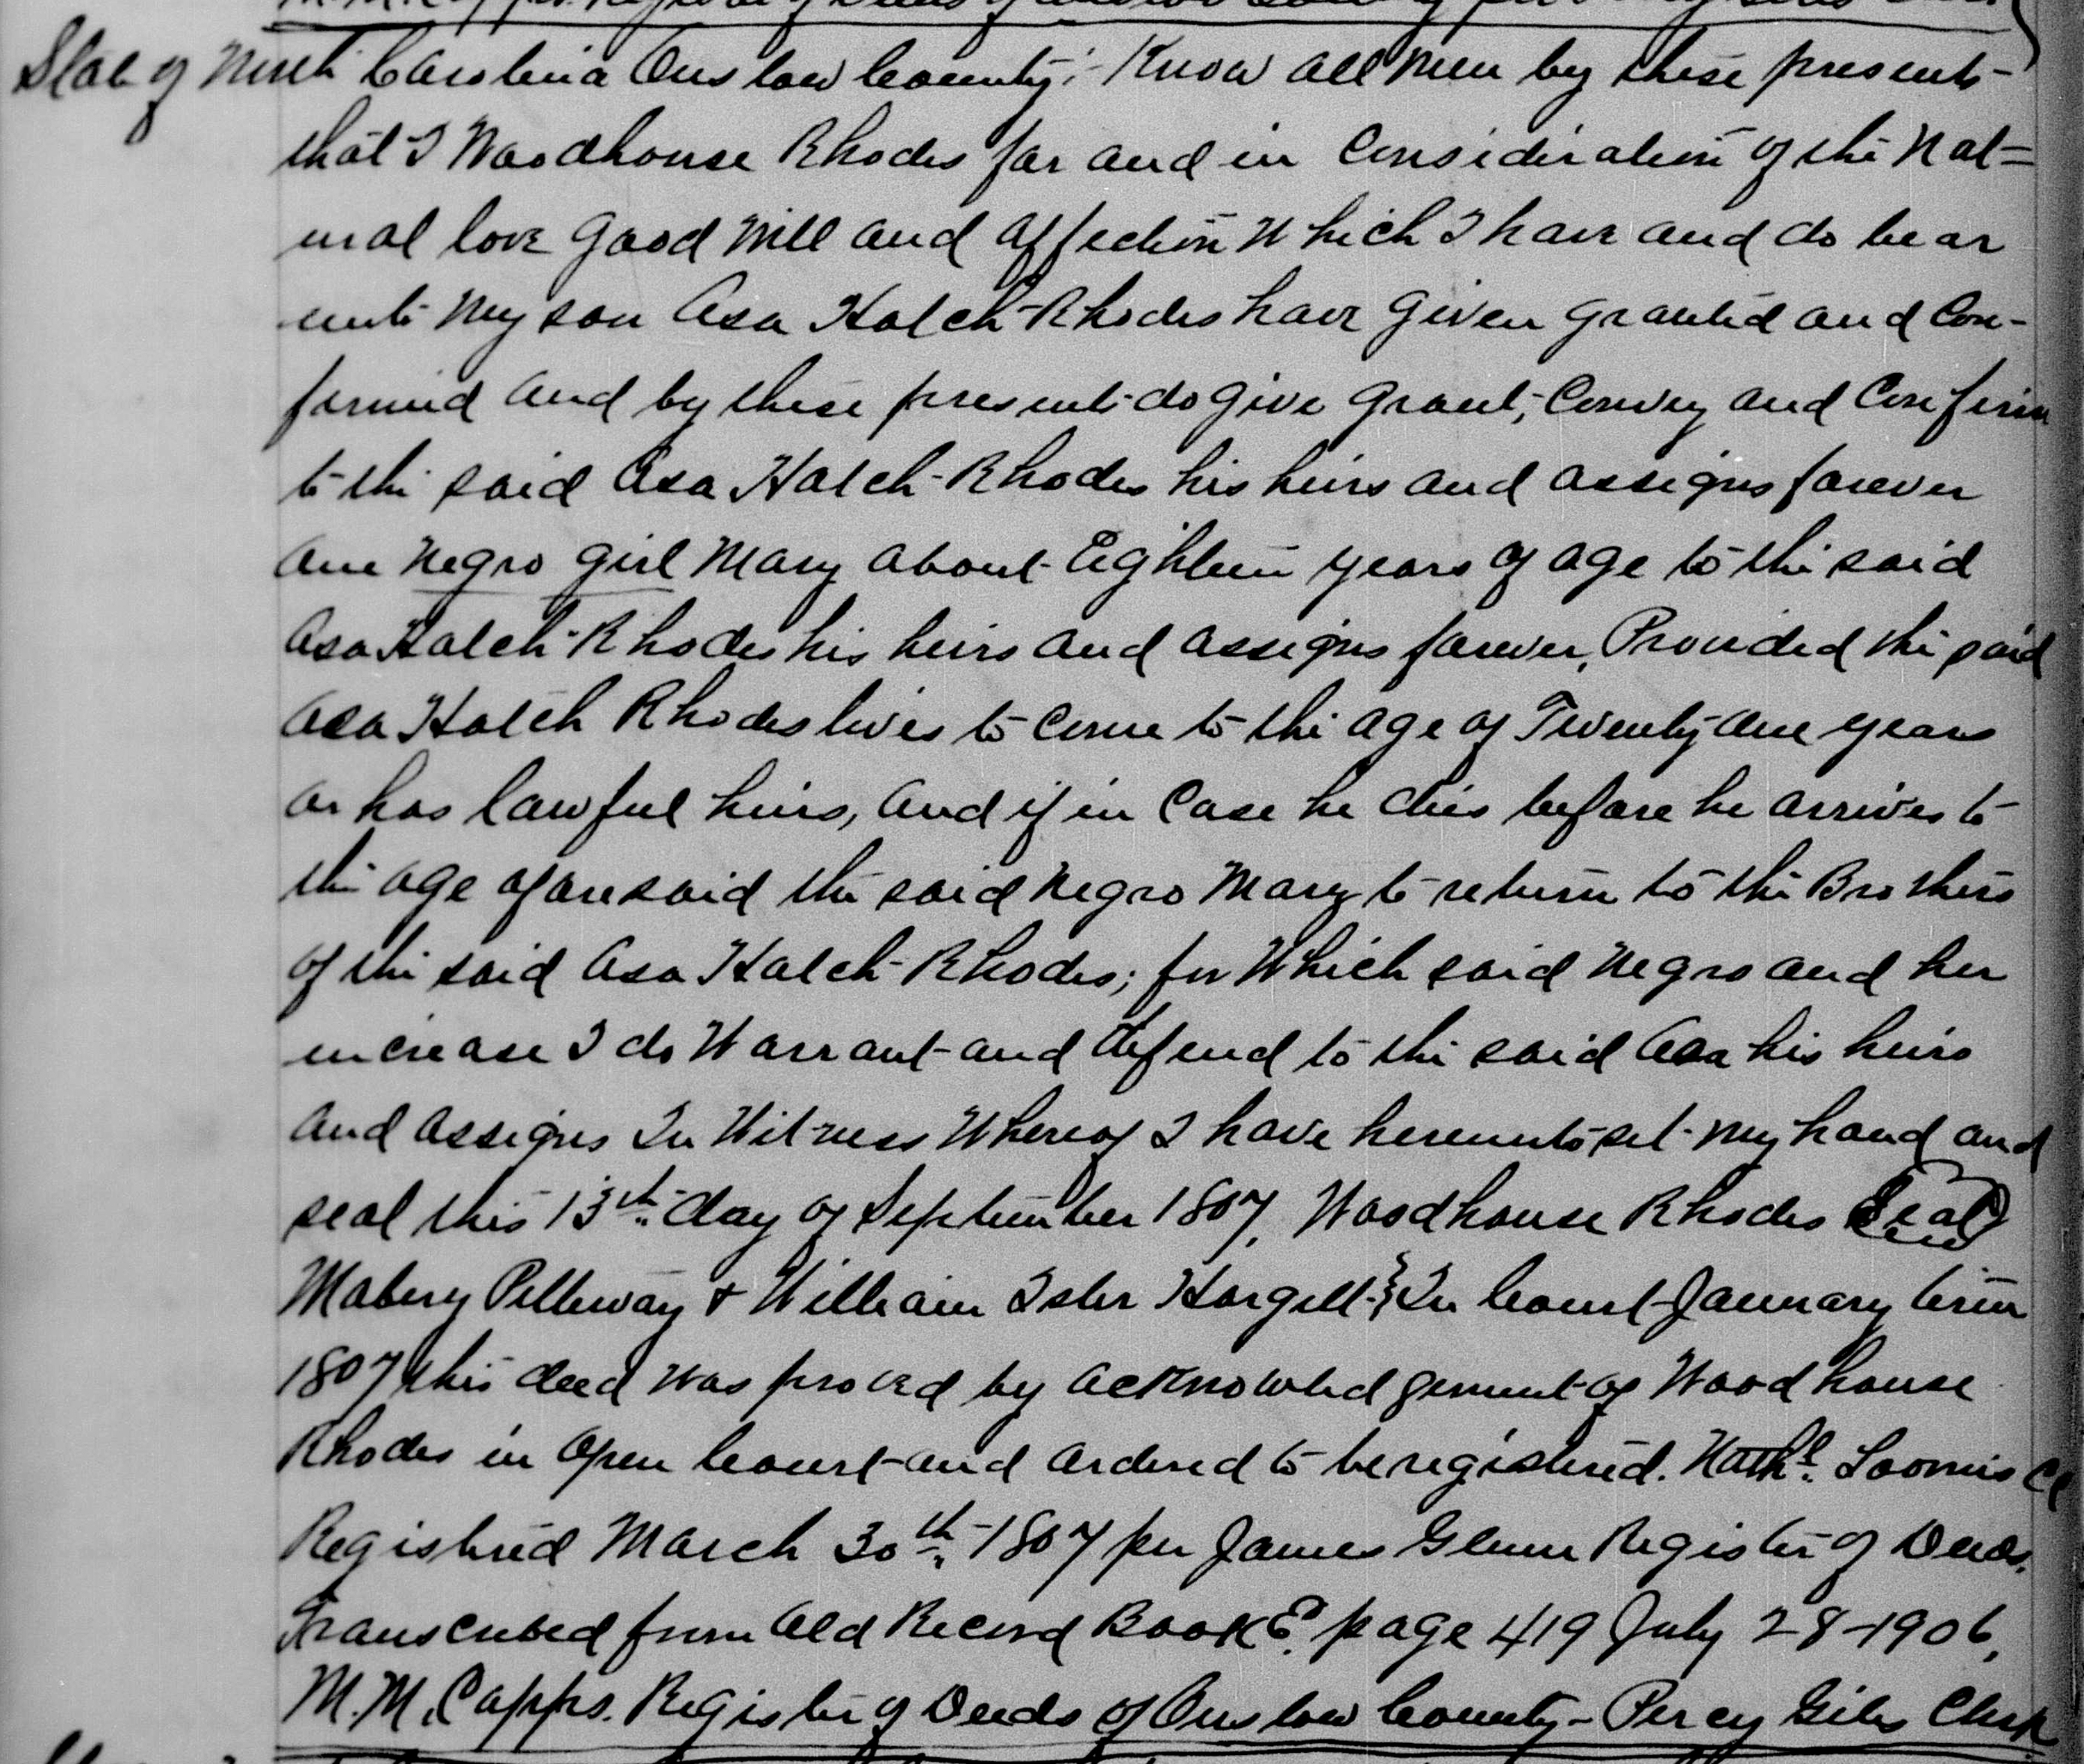 State of North Carolina Onslow County:- Know all Men by these presents-
that I Woodhouse Rhodes for and in Consideration of the Nat=
ural love Good Will and affection Which I have and do bear
unto My son Asa Hatch Rhodes have given granted and Con-
firmed and by these presents do give grant, Convey and Confirm
to the said Asa Hatch Rhodes his heirs and assigns forever
One Negro girl Mary about Eighteen years of age to the said
Asa Hatch Rhodes his heirs and assigns forever, Provided the said
Asa Hatch Rhodes lives to Come to the age of Twenty-one years
or has lawful heirs, and if in Case he dies before he arrives to
the age aforesaid the said Negro Mary to return to the Brothers
of the said Asa Hatch Rhodes; for Which said Negro and her
increase I do Warrant and defend to the said Asa his heirs
and assigns In Witness Whereof I have hereunto set My hand and
seal this 13th day of September 1807, Woodhouse Rhodes Seal
William Isler In Court January term
1807 this deed was proved by acknowledgement of Woodhouse
Rhodes in Open Court and ordered to be registered. Nathl. Loomis CC
Registered March 30th 1807 per James Glenn Register of Deeds.
Transcribed from Old Record Book E, page 419 July 28-1906,
M. M. Capps. Register of Deeds of Onslow County- Percy Giles Clerk